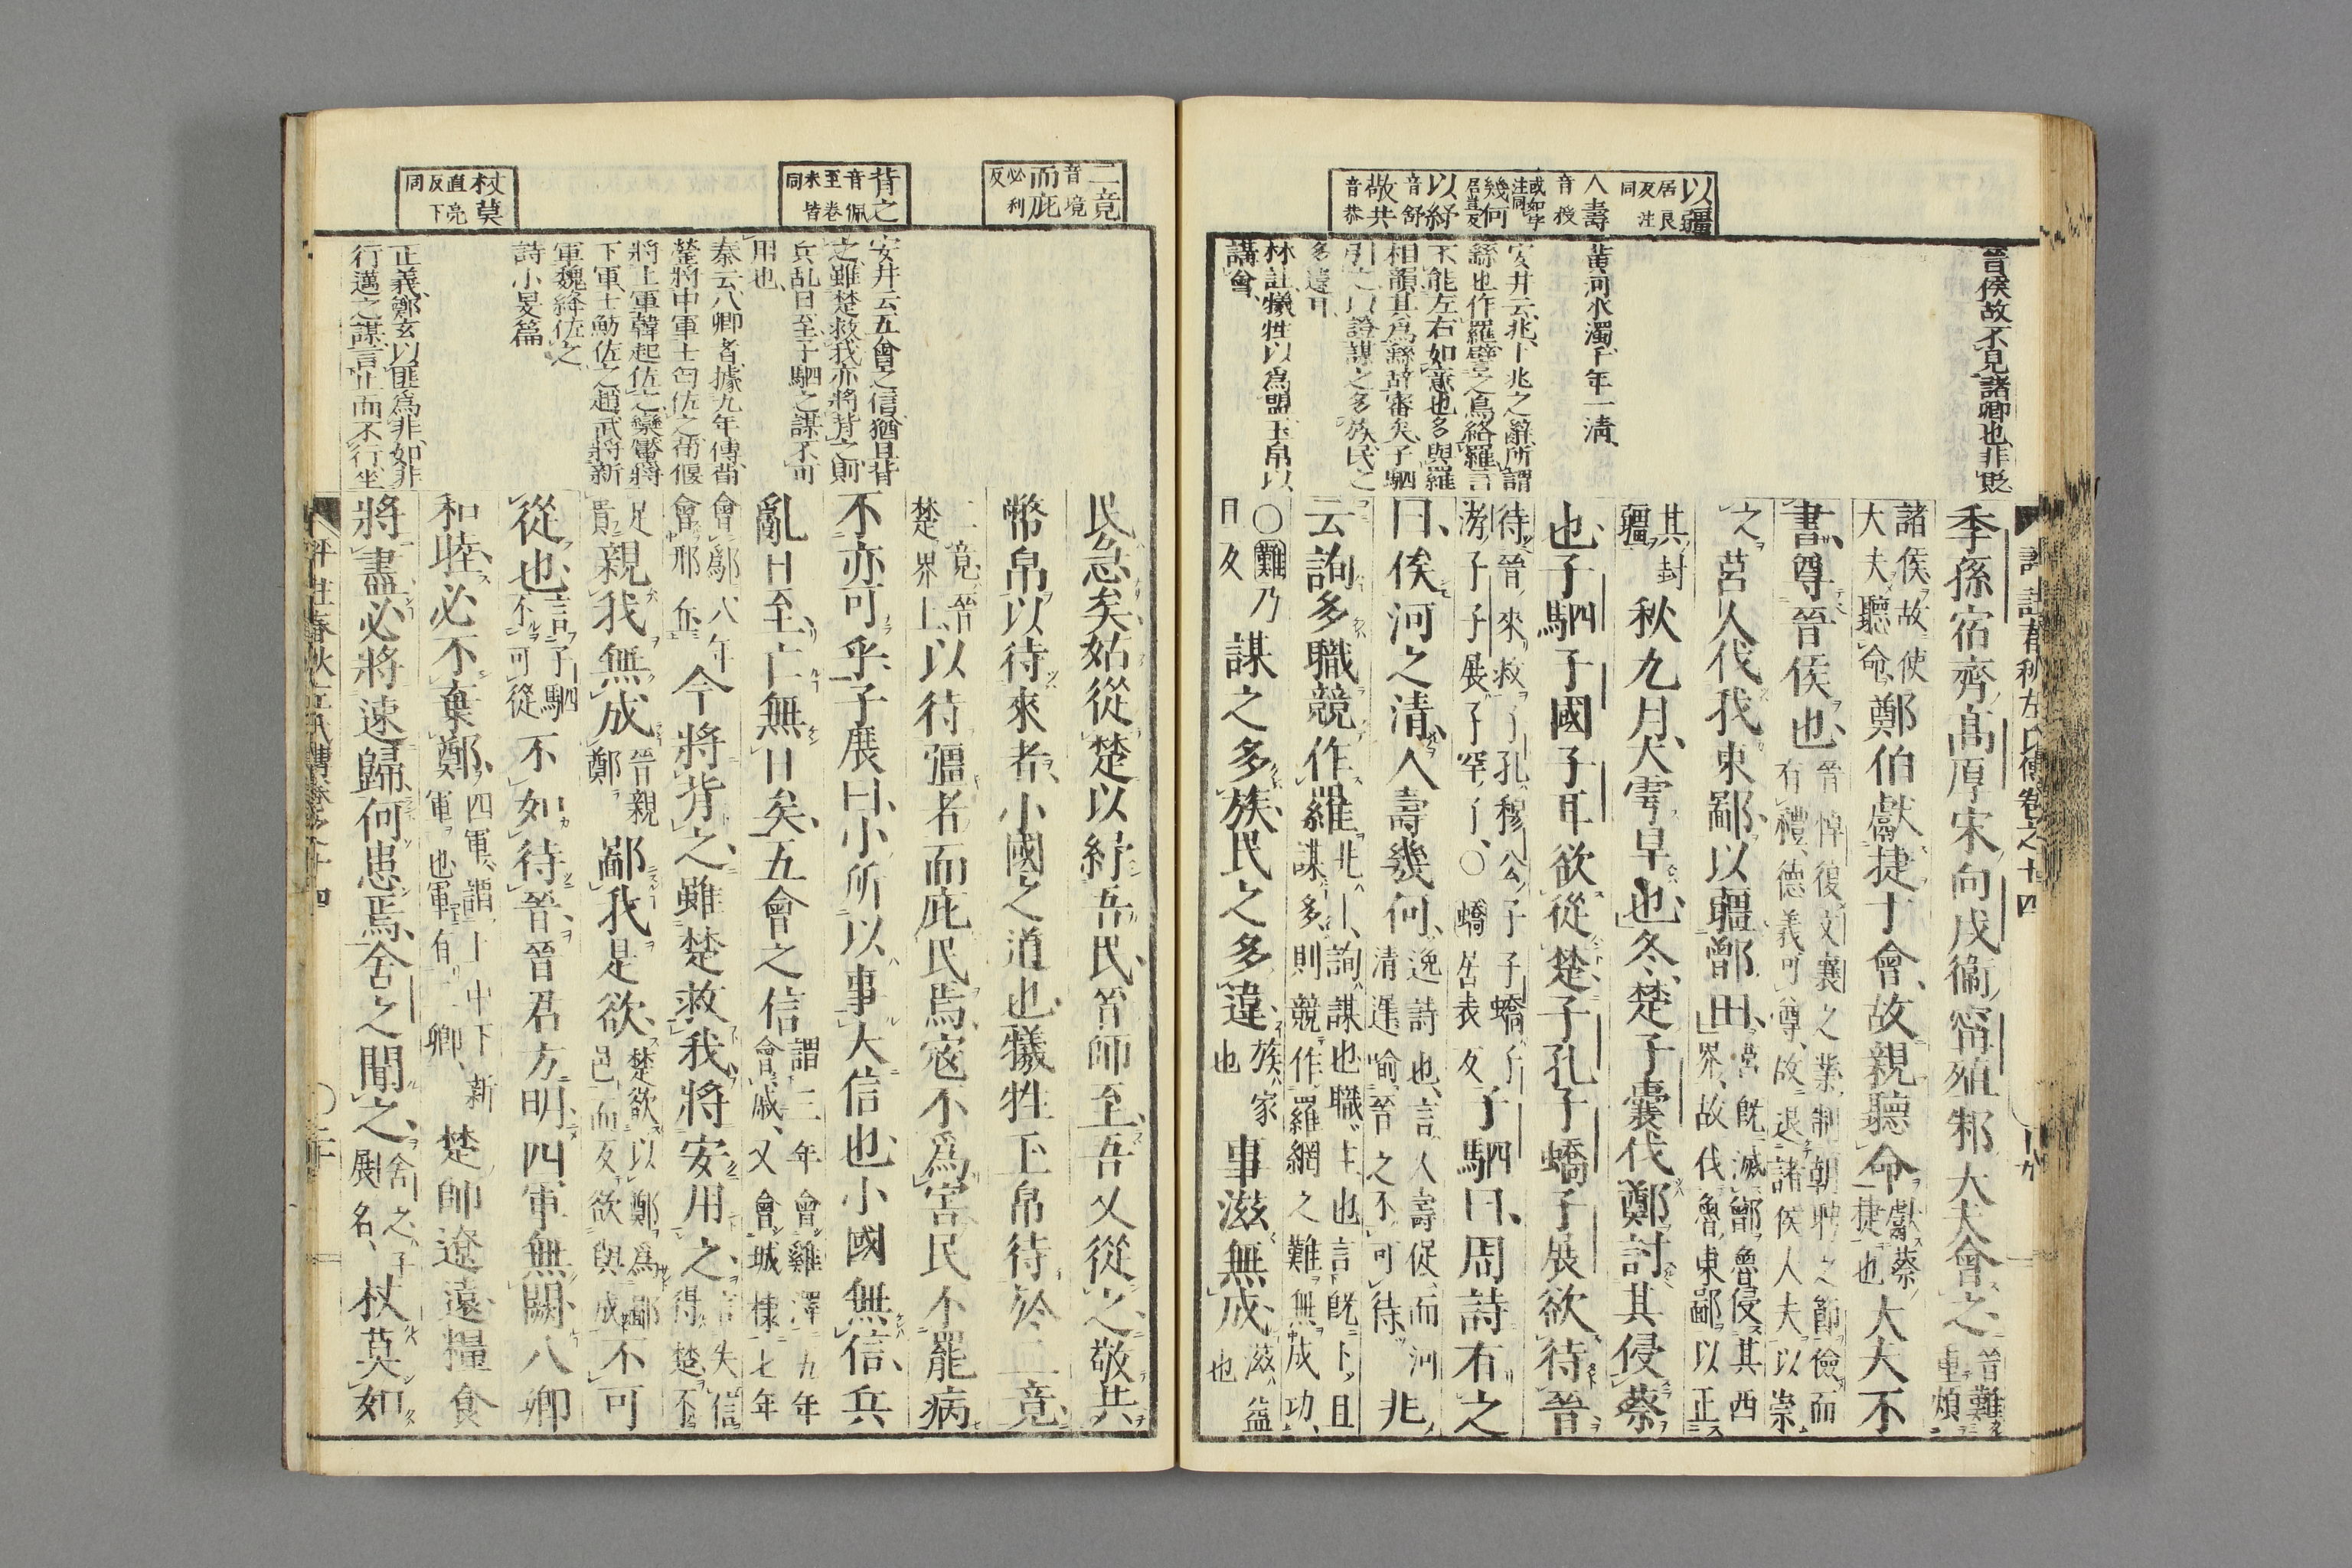 以疆
居良
反注
同
人壽
音授
或如字
注同
幾何
居豈反
以紓
音舒
敬共
音恭
晉侯故不見諸卿也非貶
黃河水濁千年一清
安井云兆卜兆之辭所謂
繇也作羅譬之鳥絡羅言
不能左右如意也多與羅
相韻其爲繇辞審矣子駟
引之以證謀之多族民之
多違耳
林註犧牲以爲盟玉帛以
講會
評註春秋左氏傳卷之十四
季孫宿齊高厚宋向戌衞甯殖邾大夫會之
晉難
重煩
諸侯故使
大夫聽命
鄭伯獻捷于會故親聽命
獻蔡
捷也
大夫不
書尊晉侯也
晉悼復文襄之業制朝聘之節儉而
有禮德義可尊故退諸侯大夫以崇
之
莒人伐我東鄙以疆鄫田
莒既滅鄫魯侵其西
界故伐魯東鄙以正
其封
疆
秋九月大雩旱也冬楚子囊伐鄭討其侵蔡
也子駟子國子耳欲從楚子孔子蟜子展欲待晉
待晉來救
子孔穆公子子蟜子
游子子展子罕子○蟜居表反
子駟曰周詩有之
曰俟河之清人壽幾何
逸詩也言人壽促而河
清遲喻晉之不可待
兆
云詢多職競作羅
兆卜詢謀也職主也言既卜且
謀多則競作羅網之難無成功
○難乃
旦反
謀之多族民之多違
族家
也
事滋無成
滋益
也
二竟
音境
而庇
必利
反
背之
音佩
至卷
末皆
同
杖莫
直亮
反下
同
安井云五會之信猶且背
之雖楚救我亦將背之則
兵乱日至子駟之謀不可
用也
秦云八卿者據九年傳荀
罃將中軍士匄佐之荀偃
將上軍韓起佐之欒黶將
下軍士魴佐之趙武將新
軍魏絳佐之
詩小旻篇
正義鄭玄以匪爲非如非
行邁之謀言止而不行坐
民急矣姑從楚以紓吾民晉師至吾又從之敬共
幣帛以待來者小國之道也犧牲玉帛待於二竟
二竟晉
楚界上
以待彊者而庇民焉寇不爲害民不罷病
不亦可乎子展曰小所以事大信也小國無信兵
亂日至亡無日矣五會之信
謂三年會雞澤
會戚又會城棣七年
會鄬八年
會邢丘
今將背之雖楚救我將安用之
言失信
得楚不
足
貴
親我無成
晉親
鄭
鄙我是欲
楚欲以鄭爲鄙
邑而反欲與成
不可
從也
言子駟
不可從
不如待晉晉君方明四軍無闕八卿
和睦必不棄鄭
四軍謂上中下新
軍也軍有二卿
楚師遼遠糧食
將盡必將速歸何患焉舍之聞之
舍之子
展名
杖莫如